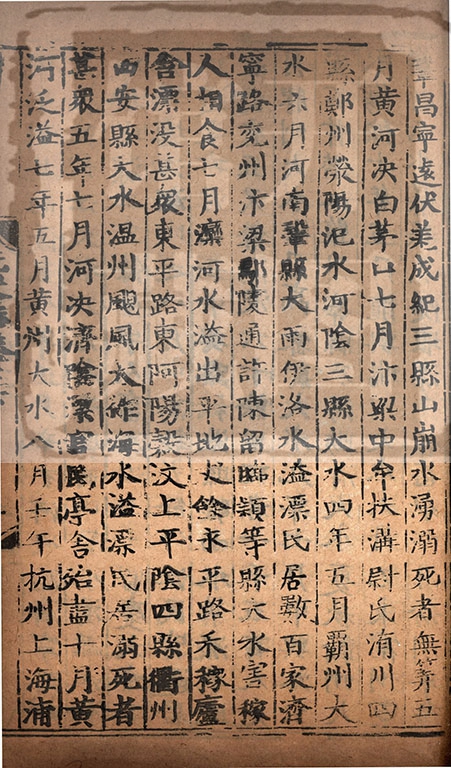 鞏昌寧遠伏羌成紀三縣山崩水湧溺死者無筭五
月黄河决白茅口七月汴梁中牟扶溝尉氏洧川四
縣鄭州滎陽汜水河陰三縣大水四年五月霸州大
水六月河南鞏縣大雨伊洛水溢漂民居數百家濟
寧路兖州汴梁鄢陵通許陳留臨潁等縣大水害稼
人相食七月灤河水溢出平地丈餘永平路禾稼廬
舍漂没甚衆東平路東阿陽穀汶上平陰四縣衢州
西安縣大水温州颶風大作海水溢漂民居溺死者
甚衆五年七月河决濟陰漂官民亭舍殆盡十月黄
河泛溢七年五月黄州大水八月壬午杭州上海浦